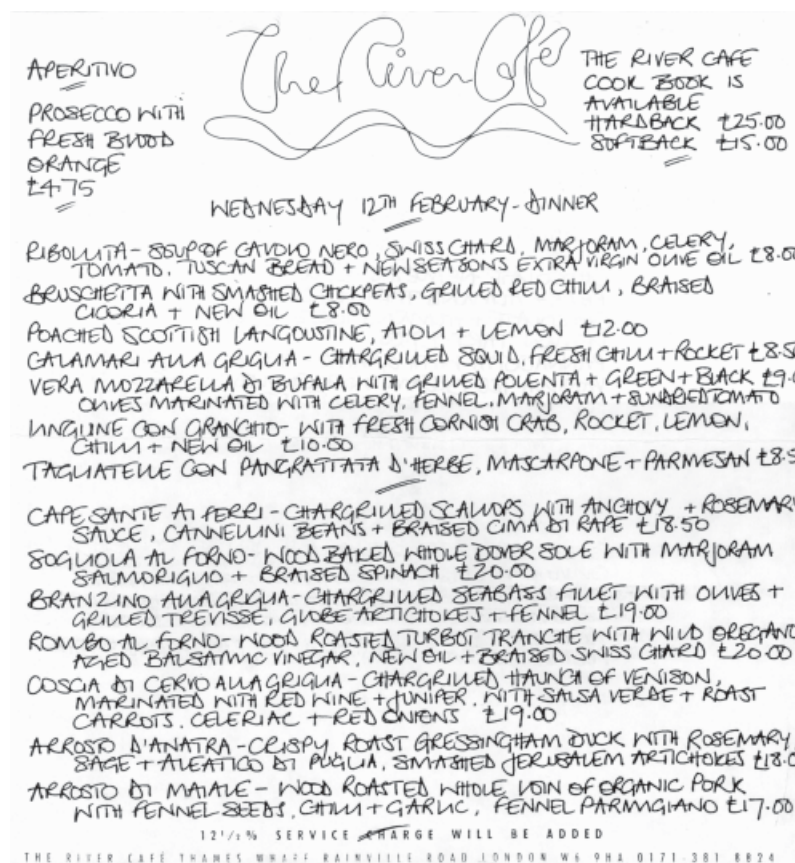 The River Café
APERITIVO
PROSECCO WITH
FRESH BLOOD
ORANGE
£4.75
THE RIVER CAFE
COOK BOOK IS
AVAILABLE
HARDBACK £25.00
SOFTBACK £15.00
WEDNESDAY 12TH FEBRUARY - DINNER
RIBOLLITA - SOUP OF CAVOLO NERO, SWISS CHARD, MARJORAM, CELERY,
TOMATO, TUSCAN BREAD + NEW SEASONS EXTRA VIRGIN OLIVE OIL £8.00
BRUSCHETTA WITH SMASHED CHICKPEAS, GRILLED RED CHILLI, BRAISED
CICORIA + NEW OIL £8.00
POACHED SCOTTISH LANGOUSTINE, AIOLI + LEMON £12.00
CALAMARI ALLA GRIGLIA - CHARGRILLED SQUID, FRESH CHILLI + ROCKET £8.50
VERA MOZZARELLA DI BUFALA WITH GRILLED POLENTA + GREEN + BLACK £9.0
OLIVES MARINATED WITH CELERY, FENNEL, MARJORAM + SUNDRIED TOMATO
LINGUINE CON GRANCHIO - WITH FRESH CORNISH CRAB, ROCKET, LEMON,
CHILLI + NEW OIL £10.00
TAGLIATELLE CON PANGRATTATA D'HERBE, MASCARPONE + PARMESAN £8.5
CAPE SANTE AI FERRI - CHARGRILLED SCALLOPS WITH ANCHOVY + ROSEMARY
SAUCE, CANNELLINI BEANS + BRAISED CIMA DI RAPE £18.50
SOGLIOLA AL FORNO - WOOD BAKED WHOLE DOVER SOLE WITH MARJORAM
SALMORIGLIO + BRAISED SPINACH £20.00
BRANZINO ALLA GRIGLIA - CHARGRILLED SEABASS FILLET WITH OLIVES +
GRILLED TREVISSE, GLOBE ARTICHOKES + FENNEL £19.00
ROMBO AL FORNO - WOOD ROASTED TURBOT TRANCHE WITH WILD OREGANO
AGED BALSAMIC VINEGAR, NEW OIL + BRAISED SWISS CHARD £20.00
COSCIA DI CERVO ALLA GRIGLIA - CHARGRILLED HAUNCH OF VENISON,
MARINATED WITH RED WINE + JUNIPER, WITH SALSA VERDE + ROAST
CARROTS, CELERIAC + RED ONIONS £19.00
ARROSTO D'ANATRA - CRISPY ROAST GRESSINGHAM DUCK WITH ROSEMARY
SAGE + ALEATICO DI PUGLIA, SMASHED JERUSALEM ARTICHOKES £18.0
ARROSTO DI MAIALE - WOOD ROASTED WHOLE LOIN OF ORGANIC PORK
WITH FENNEL SEEDS, CHILLI + GARLIC, FENNEL PARMIGIANO £17.00
12 1/2% SERVICE CHARGE WILL BE ADDED
THE RIVER CAFÉ THAMES WHARF RAINVILLE ROAD LONDON W6 9HA 0171-381 8824